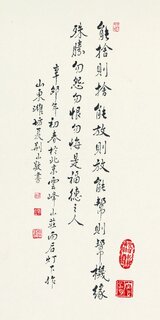 能捨則捨能放則放能幫則幫機緣
殊勝勿怨勿恨勿悔是福德之人
辛卯年初春於北京雲峰山莊雨后灯下作
山東濰坊
敬書